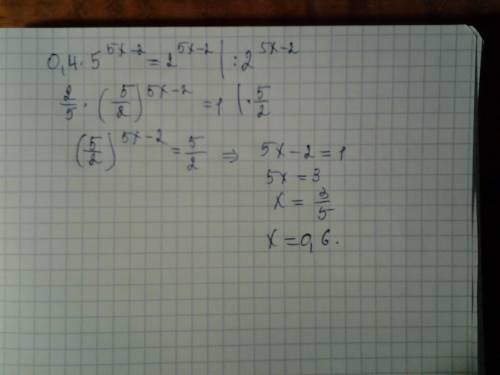 0,4·5^(5x-2) = 2^(5x-2) | : 2^(5x-2)
2/5 · (5/2)^(5x-2) = 1 | · 5/2
(5/2)^(5x-2) = 5/2 ⇒ 5x-2=1
5x=3
x = 3/5
x=0,6.